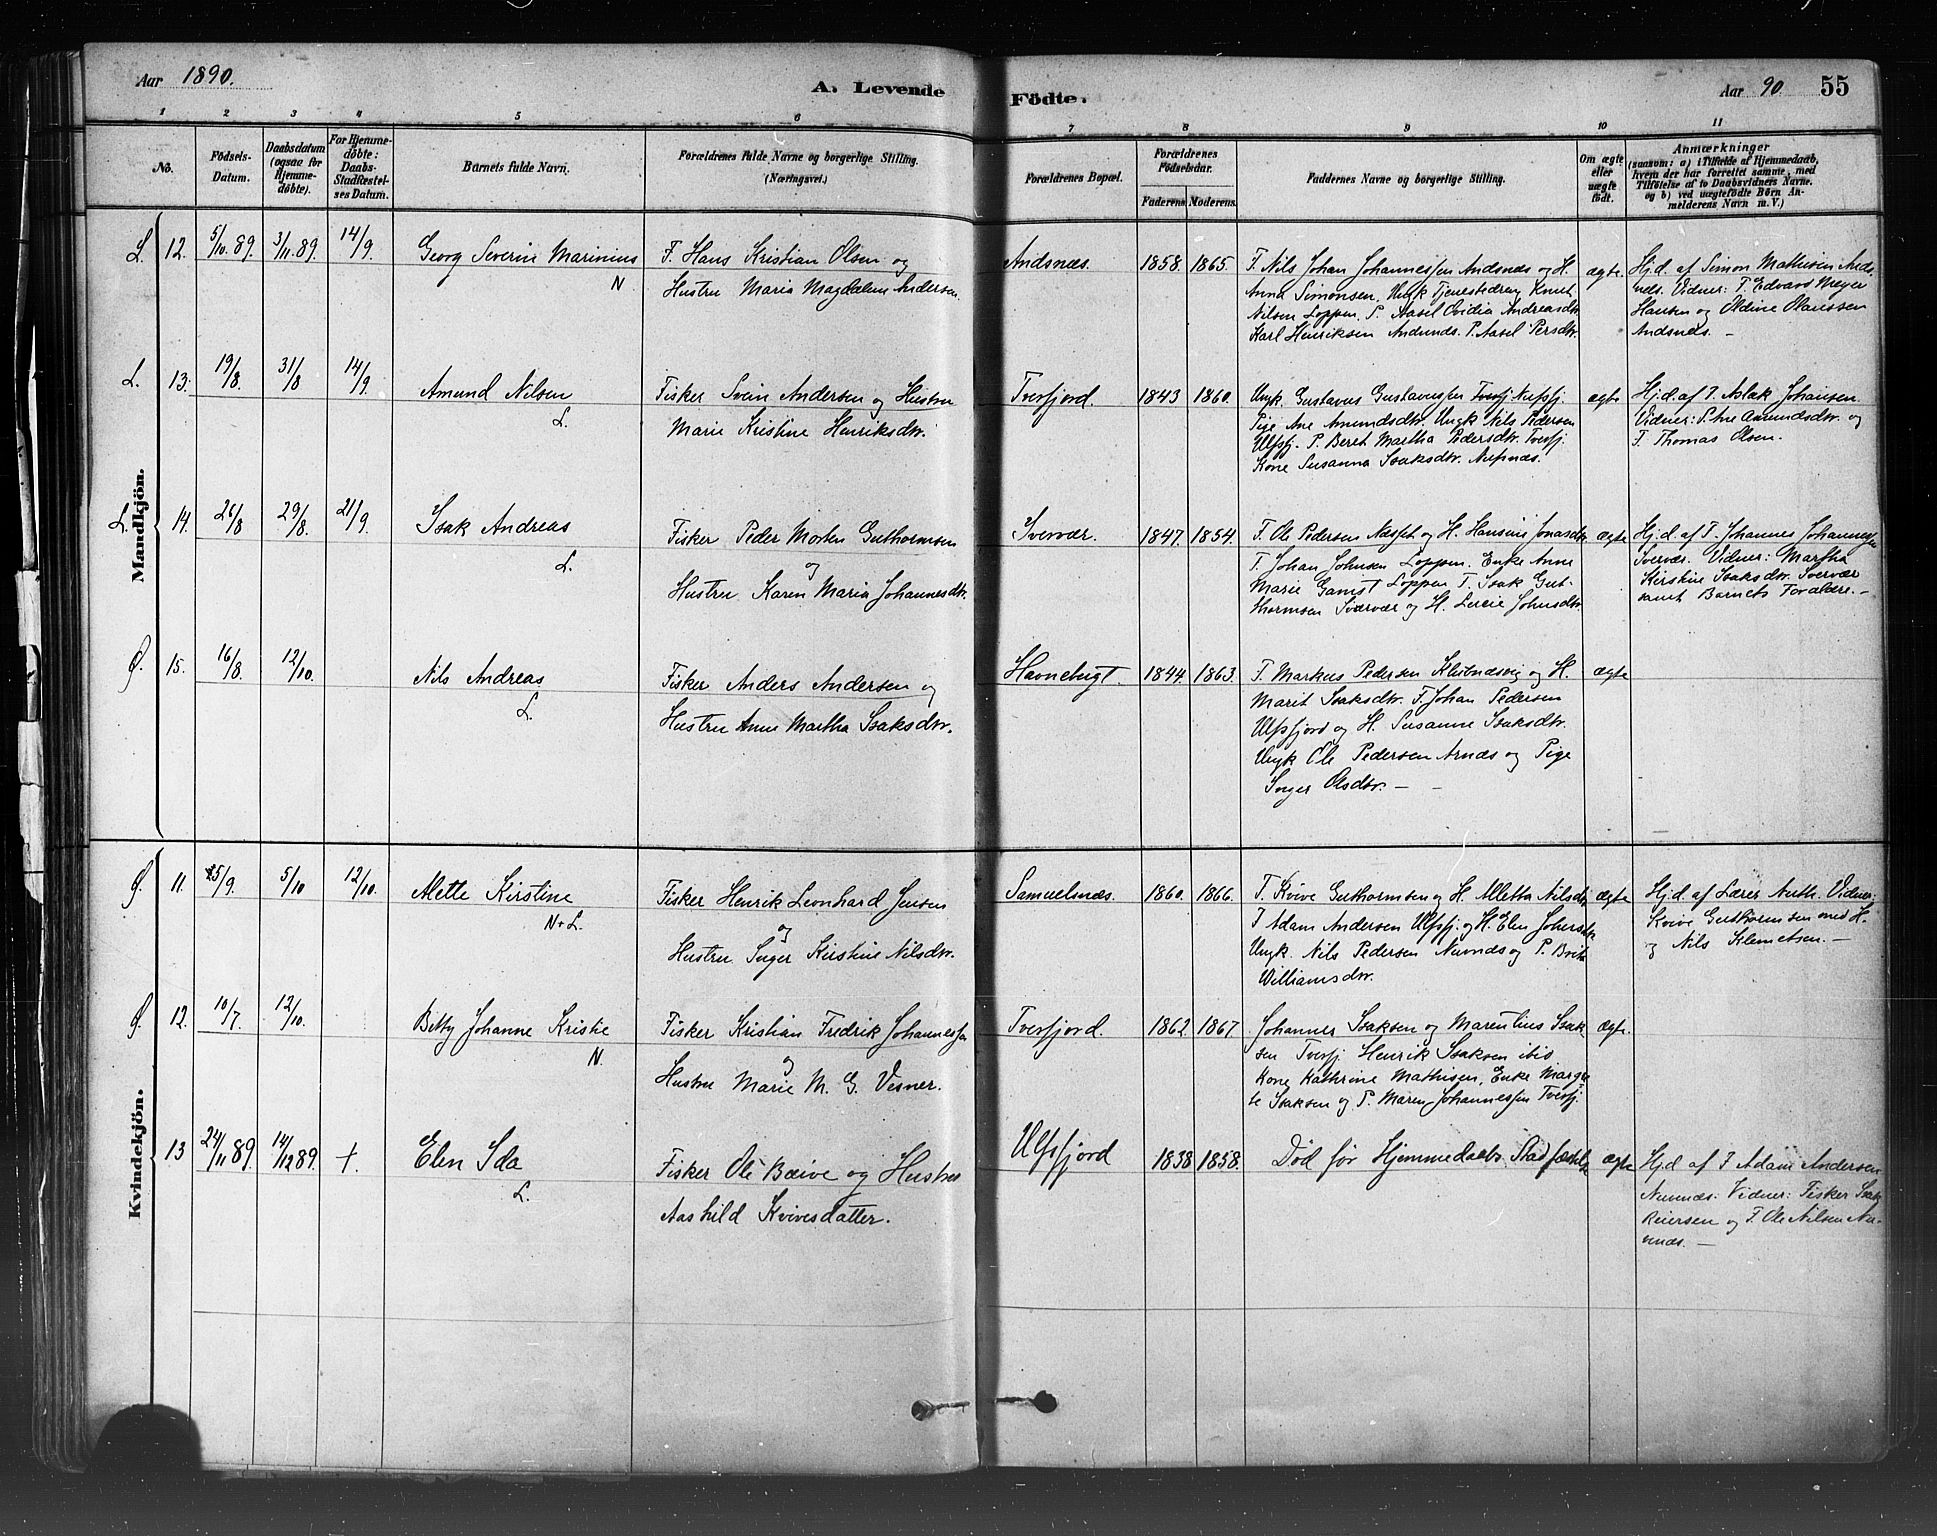 Aar 1890.
A. Levende Födte.
Aar 90.
55
1 2 3 4 5 6 7 8 9 10 11
No.
Födsels-
Datum.
Daabsdatum
(ogsaa for
Hjemme-
döbte).
For Hjemme-
döbte:
Daabs-
Stadfæstel-
ses Datum.
Barnets fulde Navn.
Forældrenes fulde Navne og borgerlige Stilling.
(Næringsvei.)
Forældrenes Bopæl.
Forældrenes
Födselsaar.
Faderens Moderens.
Faddernes Navne og borgerlige Stilling.
Om ægte
eller
uægte
födt.
Anmærkninger
(saasom: a) i Tilfælde af Hjemmedaab,
hvem der har forrettet samme, med
Tilföielse af to Daabsvidners Navne.
og b) ved uægtefödte Börn An-
melderens Navn m. V.)
Mandkjön.
L. 12. 5/10. 89. 3/11. 89. 14/9
Georg Severin Marinius
N
F. Hans Kristian Olsen og
Hustru Maria Magdalena Andersen.
Andsnæs. 1858. 1865.
F. Nils Johan Johannessen Andsnæs og H.
Anna Simonsen, Ungk Tjenestedreng Knut
Nilsen Loppen, P. Aasel Ovidia Andreasdtr
Karl Henriksen Andsnæs. P. Aasel Persdtr.
ægte.
Hj.d. af Simon Mathisen Ands-
næs. Vidner: F. Edvard Meyer
Hansen og Oldine Olaussen
Andsnæs. –
L. 13. 19/8. 31/8 14/9
Amund Nilsen
L.
Fisker Svein Andersen og Hustru
Marie Kristine Henriksdtr.
Tverfjord. 1843 1860.
Ungk. Gustavus Gustavessen Tverfj. Nufsfj.
Pige Ane Amundsdtr. Ungk Nils Pedersen
Ulfsfj. P. Beret Martha Pedersdtr. Tverfj.
Kone Susanna Isaksdtr.
ægte
Hj.d. af F. Aslak Johansen.
Vidner: S. Ane Amundsdtr. og
F. Thomas Olsen.
L. 14. 26/8 29/8. 21/9.
Isak Andreas
L.
Fisker Peder Morten Guthormsen
og
Hustru Karen Maria Johannesdtr.
Svervær. 1847. 1854.
F. Ole Pedersen Næsset og H. Hansine Jonasdtr
F. Johan Johnsen Loppen. Enke Anne
Marie Gamst Loppen F. Isak Gut-
hormsen Sværvær og H. Lucie Johnsdtr
ægte
Hj.d. af F. Johannes Johannessen
Svervær. Vidner: Martha
Kirstine Isaksdtr. Svervær
samt Barnets Forældre. –
Ø. 15. 16/8. 12/10.
Nils Andreas
L.
Fisker Anders Andersen og
Hustru Anne Martha Isaksdtr.
Havnebugt. 1844. 1863.
F. Markus Pedersen og H.
Marit Isaksdtr. F. Johan Pedersen
Ulfsfjord og H. Susanne Isaksdtr.
Ungk Ole Pedersen Arnæs og Pige
Inger Olsdtr. – –
ægte
Kvindekjön.
Ø. 11. 25/9. 5/10 12/10.
Mette Kirstine
N+L.
Fisker Henrik Leonhard Jensen
og
Hustru Inger Kirstine Nilsdtr.
Samuelsnæs. 1860. 1866.
F. Kvive Guthormsen og H. Alletta Nilsdtr
F Adam Andersen Ulfsfj. og H. Elen Johersdtr
Ungk. Nils Pedersen Nuvnæs og P. Berit
Williamsdtr.
ægte
Hj.d. af Lærer Auth. Vidner:
Kvive Guthormsen med H.
og Nils Klemetsen. –
Ø. 12. 10/7. 12/10.
Betty Johanne Kristie
N.
Fisker Kristian Fredrik Johannessen
og
Hustru Marie M. G. Vesner.
Tverfjord. 1862. 1867.
Johannes Isaksen og Marentius Isak
sen Tverfj. Henrik Isaksen ibid.
Kone Kathrine Mathisen, Enke Margre
te Isaksen og P. Maren Johannessen Tverfj.
ægte.
13 24/11 89. 14/12 89. +
Elen Ida
L.
Fisker Ole Bæive og Hustru
Aashild Kvivesdatter.
Ulfsfjord 1838 1858.
Død før Hjemmedaabs Stadfæstelse
ægte
Hj.d. af F Adam Andersen
Nuvnæs. Vidner: Fisker Isak
Reiersen og F. Ole Nilsen Nu-
vnæs. –